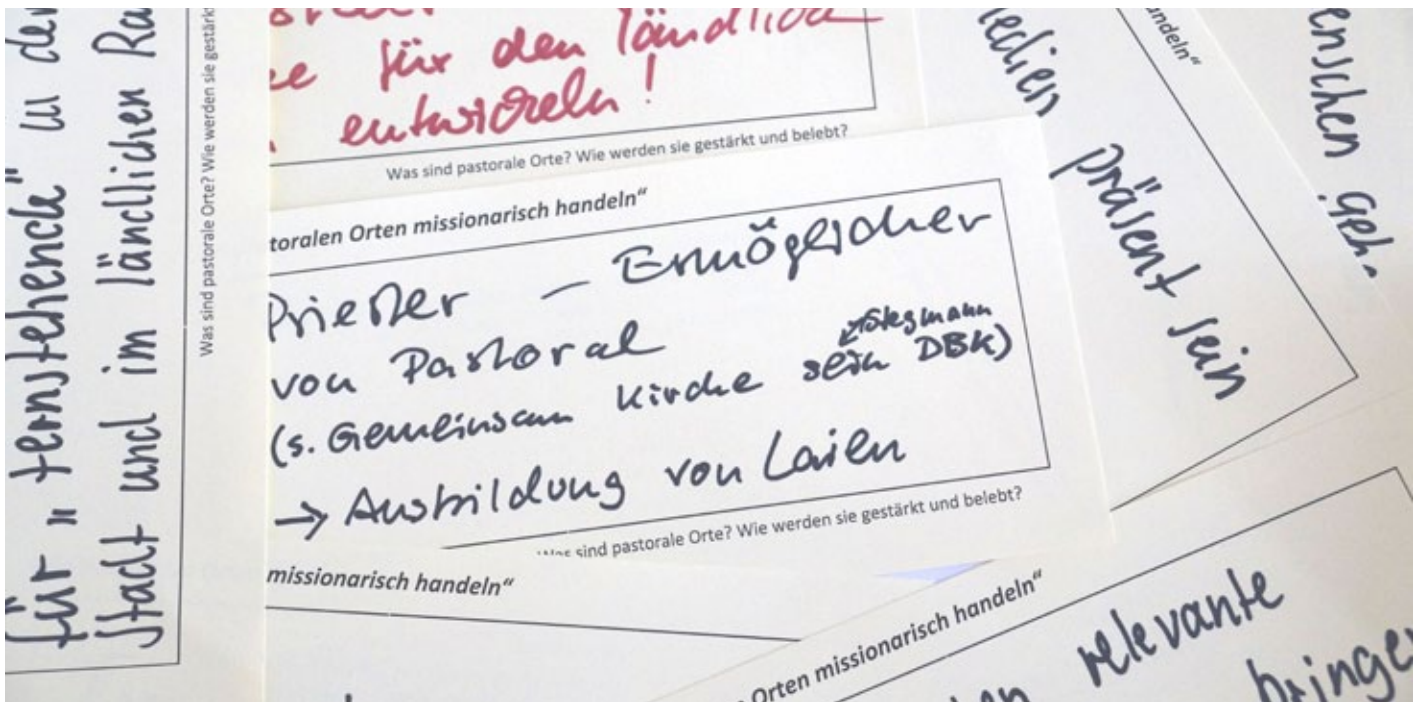 für „fernstehende" in der
Stadt und im ländlichen
Was sind pastorale Orte? Wie werden sie gestärkt
für den ländlich
entwickeln!
Was sind pastorale Orte? Wie werden sie gestärkt und belebt?
toralen Orten missionarisch handeln“
Priester – Ermöglicher
von Pastoral
(s. Gemeinsam Kirche sein DBK)
→ Ausbildung von Laien
Was sind pastorale Orte? Wie werden sie gestärkt und belebt?
missionarisch handeln“
präsent sein
andeln“
enschen geh.
Orten missionarisch handeln“
relevante
bringe